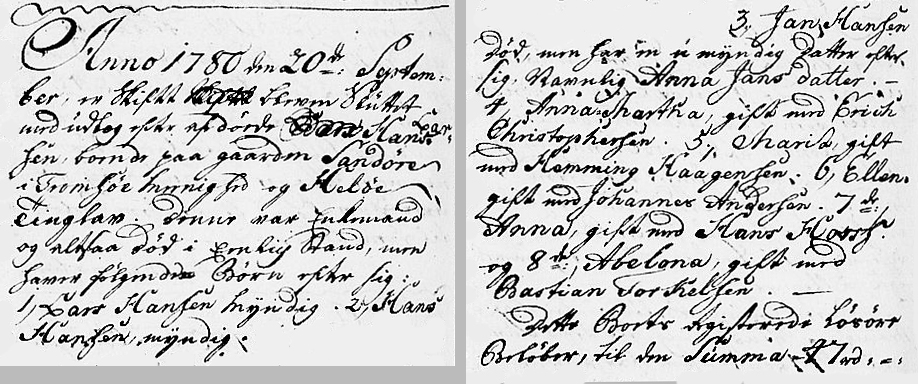 Anno 1780 den 20de: Septem-
ber, er Skiftt bleven Sluttet
med udlæg efter afdøde Hans Lar-
sen, boende paa gaarden Sandøre
i Tromsøe Menighed og Helgøe
Tinglav. Denne var Enkemand
og altsaa død i Eenlig Stand, men
haver følgende Børn efter sig:
1, Lars Hansen Myndig. 2, Hans
Hansen, myndig.
3, Jan Hansen
død, men har en u myndig datter efter
sig Navnlig Anna Jans datter. -
4, Anna Martha, gift med Erich
Christophersen. 5, Maria, gift
med Hemming Haagensen. 6, Ellen,
gift med Johannes Andersen. 7de:
Anna, gift med Hans
og 8de: Abelona, gift med
Bastian Torkelsen. —
Dette Boets Registerede Løsøre
Beløber, til den Summa 47 rd: -: